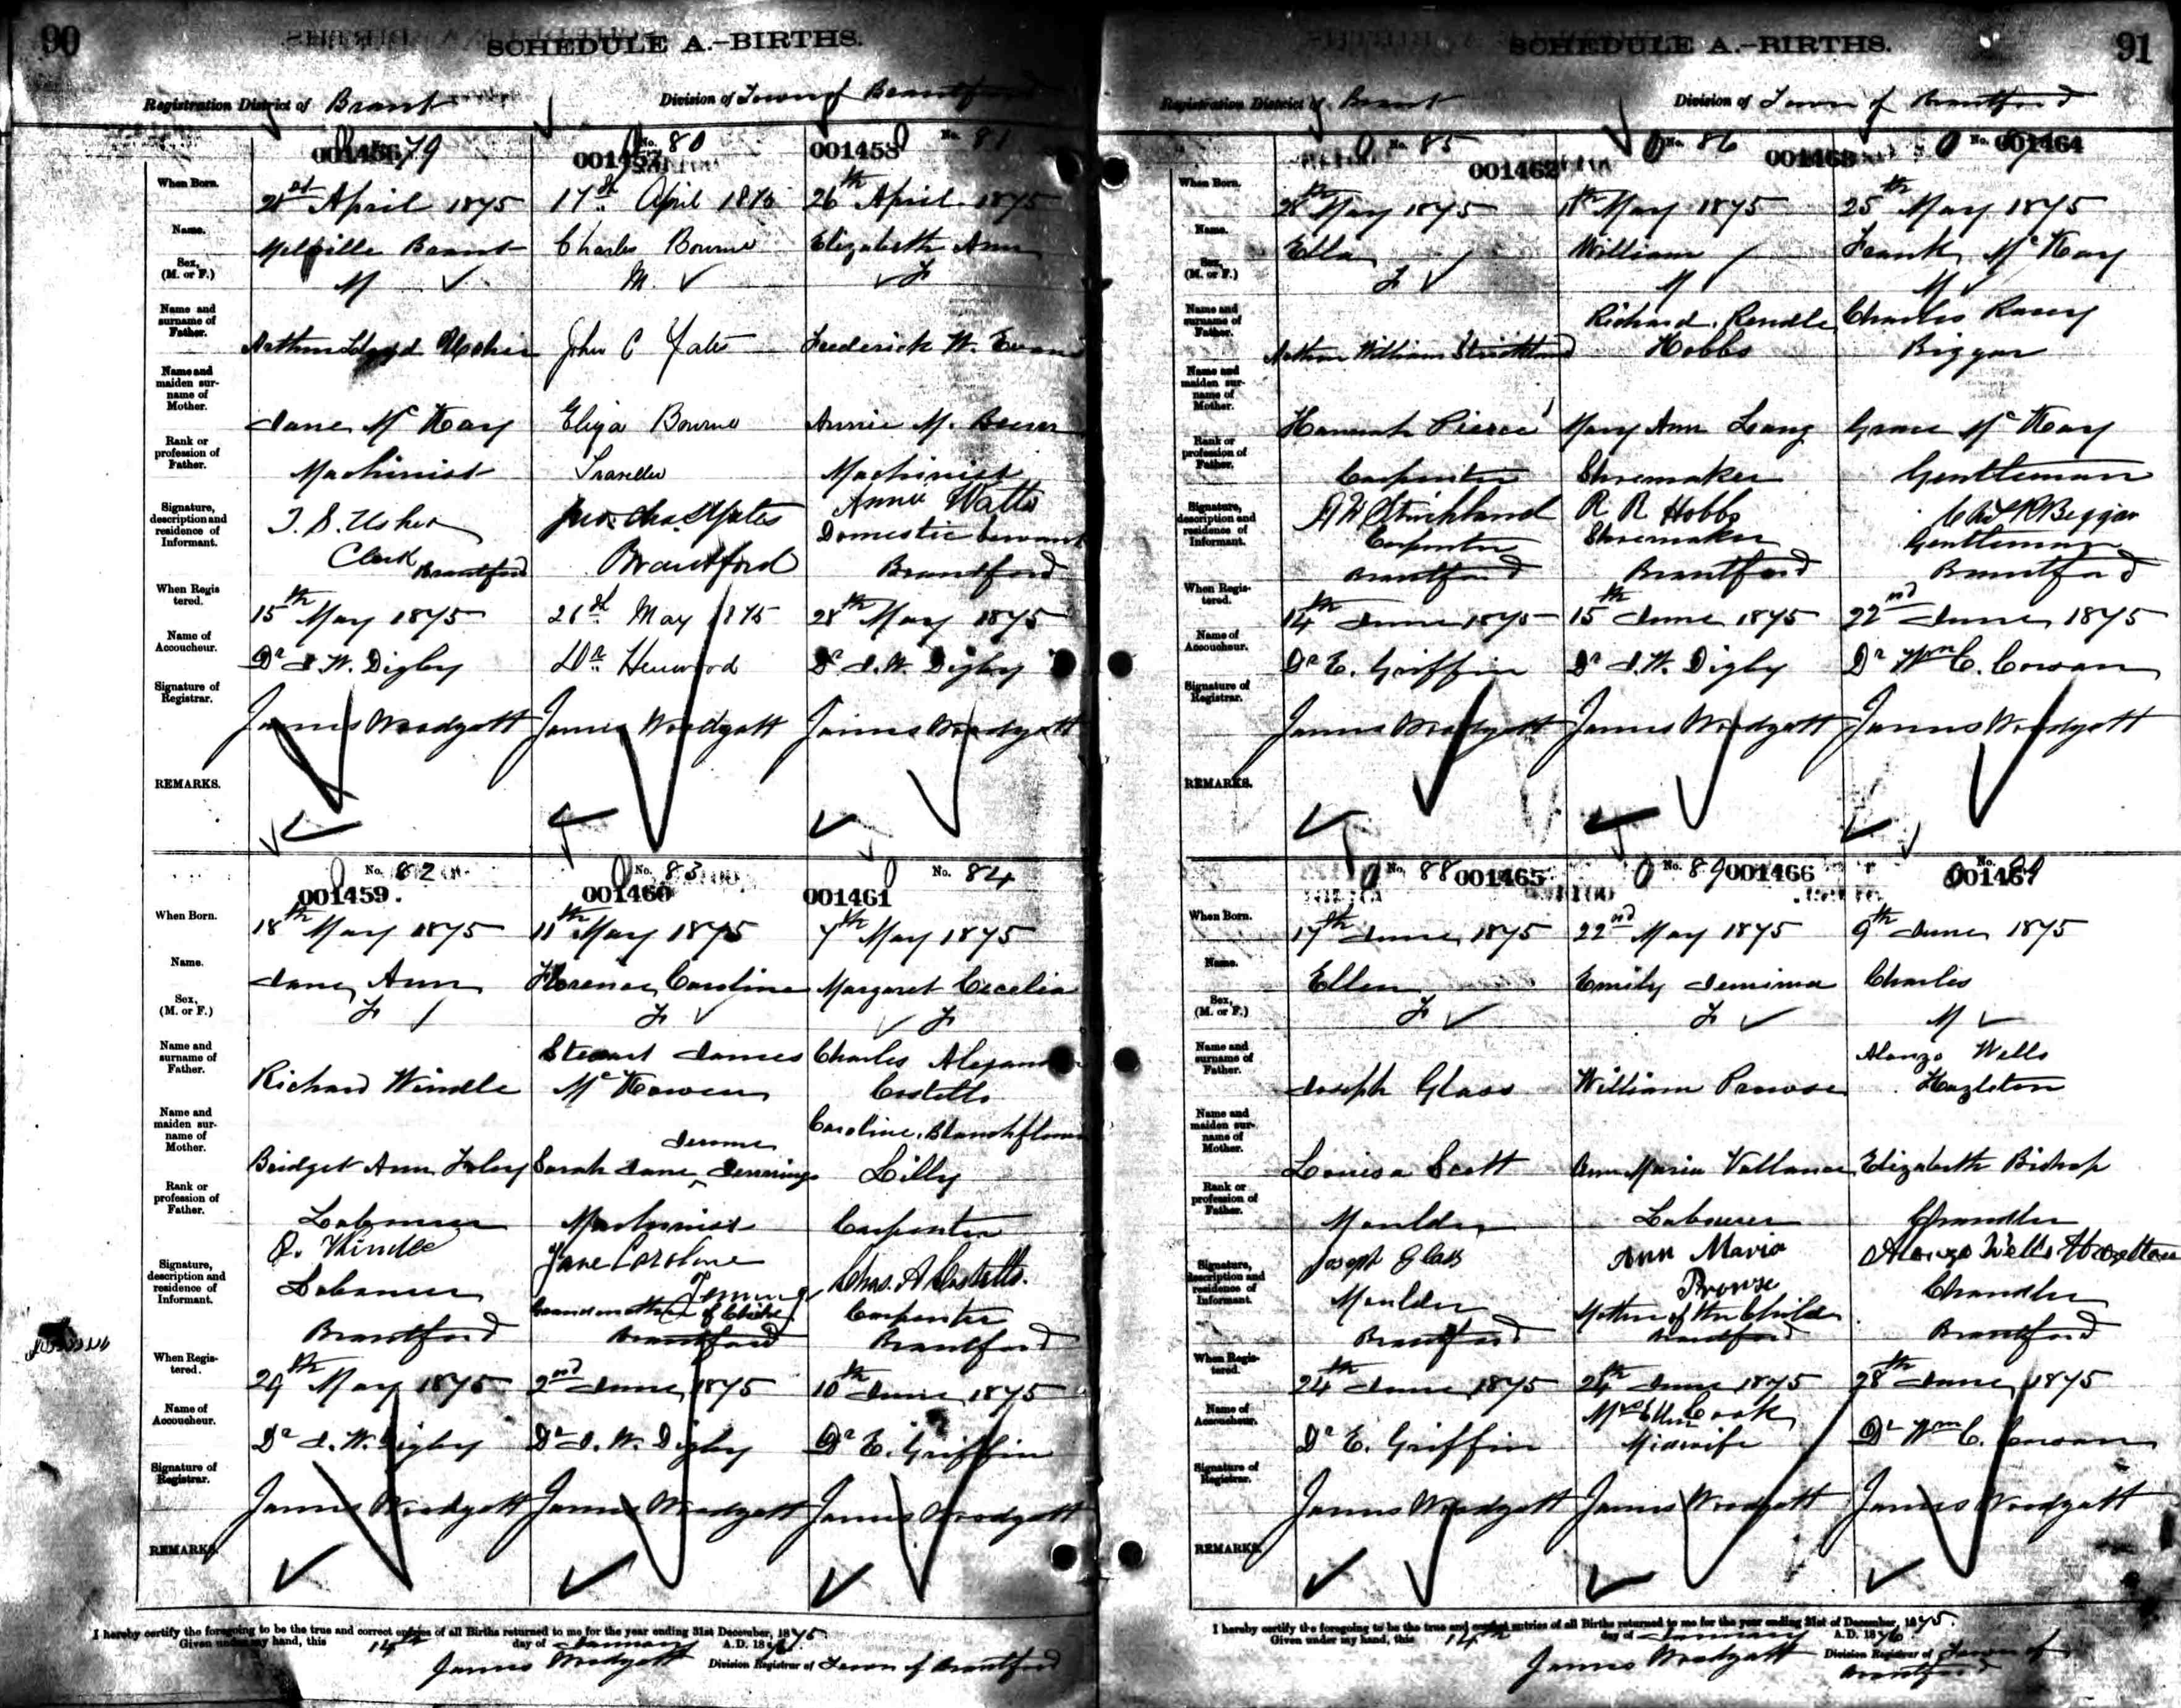 90
SCHEDULE A.-BIRTHS.
Registration District of Brant
Division of Town of Brantford
001456 79
No. 80
001457
001458 No. 81
When Born.
21st April 1875
17th April 1875
26th April 1875
Name.
Melville Brant
Charles Bourne
Elizabeth Ann
Sex, (M. or F.)
M
M.
F
Name and surname of Father.
Arthur Lloyd Usher
John C Yates
Frederick W. Evans
Name and maiden surname of Mother.
Jane McKay
Eliza Bourne
Annie M.
Rank or profession of Father.
Machinist
Traveller
Machinist
Signature, description and residence of Informant.
T. S. Usher
Clerk
Brantford
Yates
Brantford
Annie Watts
Domestic Servant
Brantford
When Registered.
15th May 1875
26th May 1875
28th May 1875
Name of Accoucheur.
Dr J. W. Digby
Dr. Henwood
Dr J. W. Digby
Signature of Registrar.
James Woodyatt
James Woodyatt
James Woodyatt
REMARKS.
No. 82
001459.
No. 83
001460
No. 84
001461
When Born.
18th May 1875
11th May 1875
7th May 1875
Name.
Jane Ann
Florence Caroline
Margaret Cecelia
Sex, (M. or F.)
F
F
F
Name and surname of Father.
Richard Windle
Stewart James
McKowen
Charles Alexander
Costello
Name and maiden surname of Mother.
Bridget Ann Foley
Jerome
Sarah Jane Jennings
Caroline Blanchflower
Lilly
Rank or profession of Father.
Labourer
Machinist
Carpenter
Signature, description and residence of Informant.
R. Windle
Labourer
Brantford
Jane Caroline
Grandmother of Child
Brantford
Chas. A Costello.
Carpenter
Brantford
When Registered.
29th May 1875
2nd June 1875
10th June 1875
Name of Accoucheur.
Dr J. W. Digby
Dr J. W. Digby
Dr E. Griffin
Signature of Registrar.
James Woodyatt
James Woodyatt
James Woodyatt
REMARKS.
I hereby certify the foregoing to be the true and correct entries of all Births returned to me for the year ending 31st December, 1875.
Given under my hand, this 14th day of January A.D. 1876
James Woodyatt Division Registrar of Town of Brantford
91
SCHEDULE A.-BIRTHS.
Registration District of Brant
Division of Town of Brantford
No. 85
001462
No. 86
001463
No.
001464
When Born.
May 1875
May 1875
25th May 1875
Name.
Ella
William
Frank McKay
Sex, (M. or F.)
F
M
M
Name and surname of Father.
Arthur William Strickland
Richard Rendle
Hobbs
Charles
Biggar
Name and maiden surname of Mother.
Hannah Pierce
Mary Ann Lang
Grace McKay
Rank or profession of Father.
Carpenter
Shoemaker
Gentleman
Signature, description and residence of Informant.
A W Strickland
Carpenter
Brantford
R R Hobbs
Shoemaker
Brantford
Chas R Biggar
Gentleman
Brantford
When Registered.
14th June 1875
15th June 1875
22nd June 1875
Name of Accoucheur.
Dr E. Griffin
Dr J. W. Digby
Dr Wm C. Cowan
Signature of Registrar.
James Woodyatt
James Woodyatt
James Woodyatt
REMARKS.
No. 88 001465
No. 89 001466
No.
001467
When Born.
17th June 1875
22nd May 1875
9th June 1875
Name.
Ellen
Emily Jemima
Charles
Sex, (M. or F.)
F
F
M
Name and surname of Father.
Joseph Glass
William Prowse
Alonzo Wells
Hazleton
Name and maiden surname of Mother.
Louisa Scott
Ann Maria Vallance
Elizabeth Bishop
Rank or profession of Father.
Moulder
Labourer
Chandler
Signature, description and residence of Informant.
Joseph Glass
Moulder
Brantford
Ann Maria
Prowse
Mother of the Child
Brantford
Alonzo Wells Hazelton
Chandler
Brantford
When Registered.
24th June 1875
24th June 1875
28th June 1875
Name of Accoucheur.
Dr E. Griffin
Mrs Cook
Midwife
Dr Wm C. Cowan
Signature of Registrar.
James Woodyatt
James Woodyatt
James Woodyatt
REMARKS.
I hereby certify the foregoing to be the true and correct entries of all Births returned to me for the year ending 31st of December, 1875.
Given under my hand, this 14th day of January A.D. 1876
James Woodyatt Division Registrar of Town of
Brantford